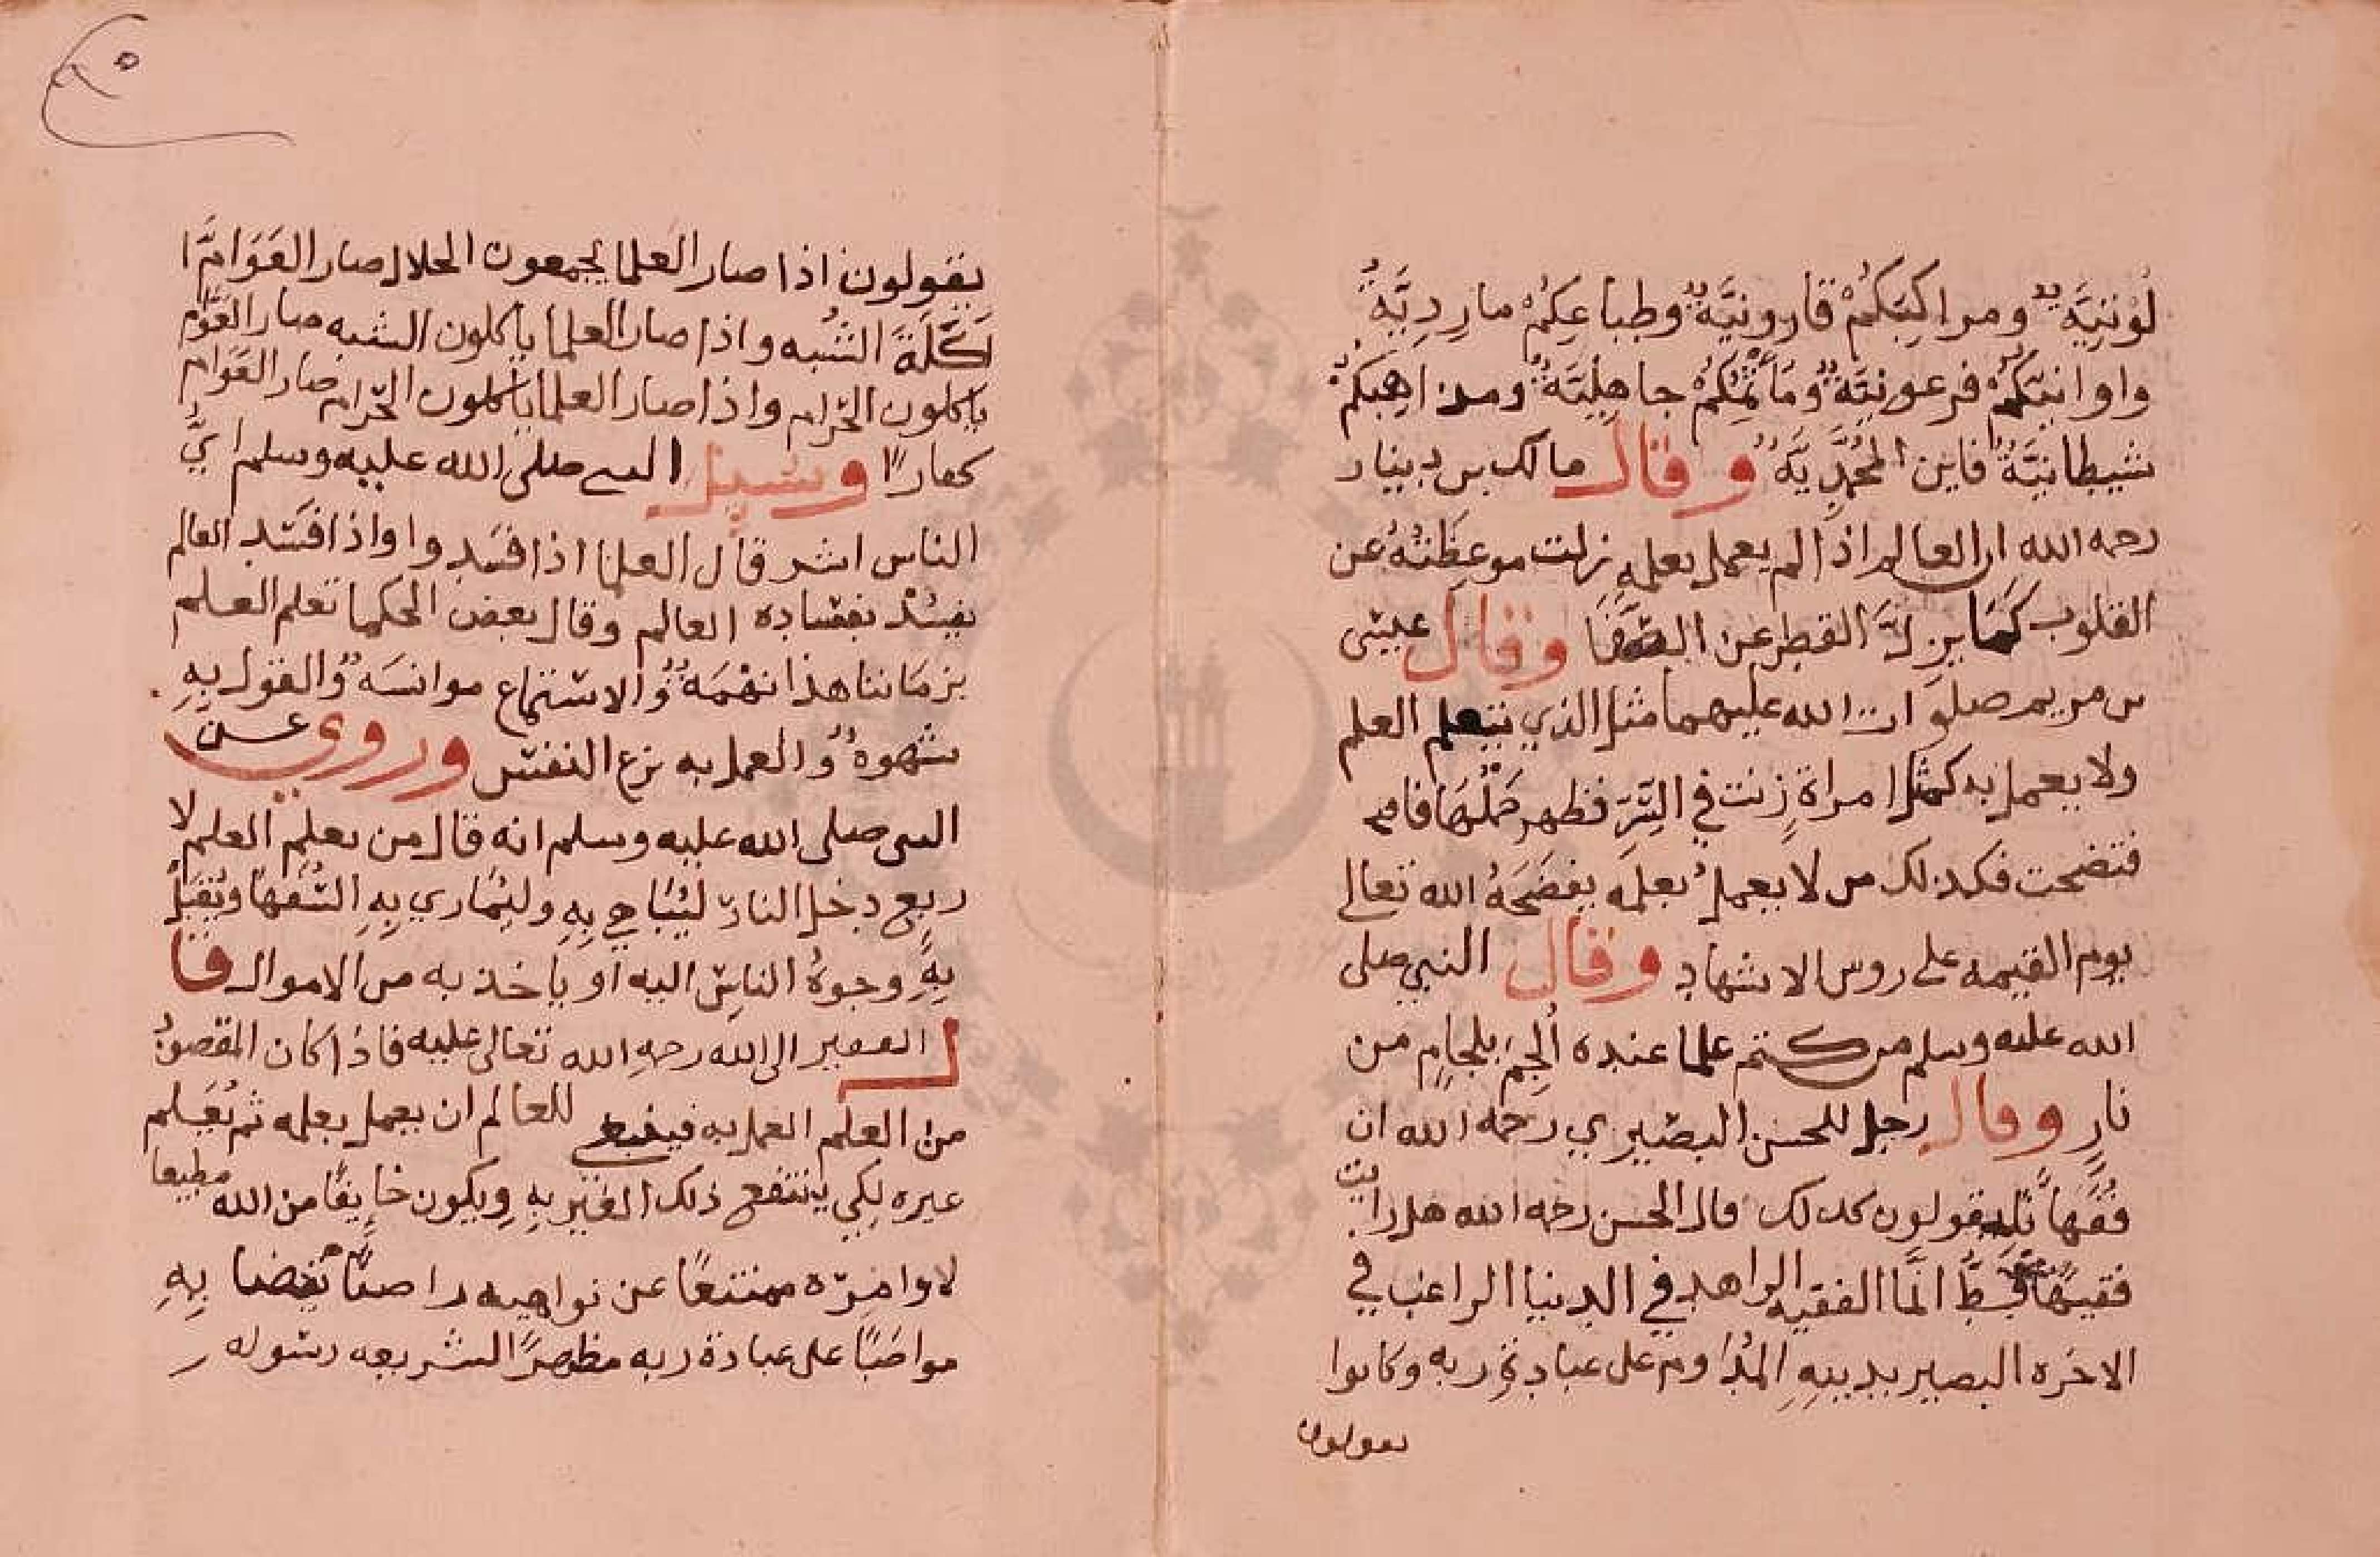 لوتيَّة ومراكبَكُمْ قارونيَّة وطباعِكمُ ماردِيَّةُ
واوانيَكُمُ فرعونيَة وَمأثمكُمْ جاهِليَّةُ ومذاهبكمُ
شيطانيَّة فاين المحُمَّدِيَّة وقال مالك بن دينار
رحمه الله ان العالم اذا لم يعمل بعلمهِ زلت موعِظَتهُ عن
القلوب كَمَا يزلَّ القطر عن الصَّفَا وقال عيسى
بن مريم صلوات الله عليهما مثل الذي يتعلم العلم
ولا يعمل به كمثل امراةٍ زنت في السِّرّ فظهر حَمْلُهَا
فتضحت فكذلك من لا يعملُ بعلمَه يفضَحَهُ الله تعالى
يوم القيمه على روس الاشهادِ وقال النبي صلى
الله عليه وسلم من كتم علما عنده أُلجِمَ بلجامٍ من
نارٍ وقال رجل للحسن البصيري رحمه الله ان
فُقَهَا يقولون كذلك قال الحسن رحمه الله هل رايت
فقيهًا قَطُّ انَّما الفقيه الزاهد في الدنيا الراغب في
الاخره البصير بدينهِ المُدَاوم على عبادةِ ربه وكانوا
يقولون
يقولون اذا صار العلما يجمعون الحلال صار العَوَامّ
اكَلَةً الشبه واذا صار العلما ياكلون الشبه صار العَوَّام
ياكلون الحَرام واذا صار العلما ياكلون الحَرام صار العَوَام
كفارًا وسيل النبي صلى الله عليه وسلم ايُّ
الناس اشر قال العلما اذا فسَدوا واذا افسَد العالم
يفسُد بفسَاده العالم وقال بعض الحكما تعلم العلم
بزمَاننا هذا تهْمَة وُالاستماع موانسَة وُالقول بهِ
شهوة وُالعمل به نزع النفسِ وروي عن
النبي صلى الله عليه وسلم انه قال من يعلم العلم لا
ربع دخل النارّ ليُبَاهي بِهِ وليُمَاري بِهِ السُّفَهَا ويُقبَلْ
بِهِ وجوهُ الناسِ اليه او ياخذ به من الاموال قا
ل الفقير الى الله رحمهِ الله تعالى عليه فاذا كان المقصودُ
من العلم العمل به فينبغي للعالم ان يعمل بعلمه ثم يُعَلم
غيره لِكي ينتفع ذلك الغير بِهِ ويكون خايفًا من الله مطيعا
لاوامِرَه ممتنعًا عن نواهيه راضيًا بقضا بِهِ
مواضبًا على عبادة ربه مظهرًا الشريعه رسوله